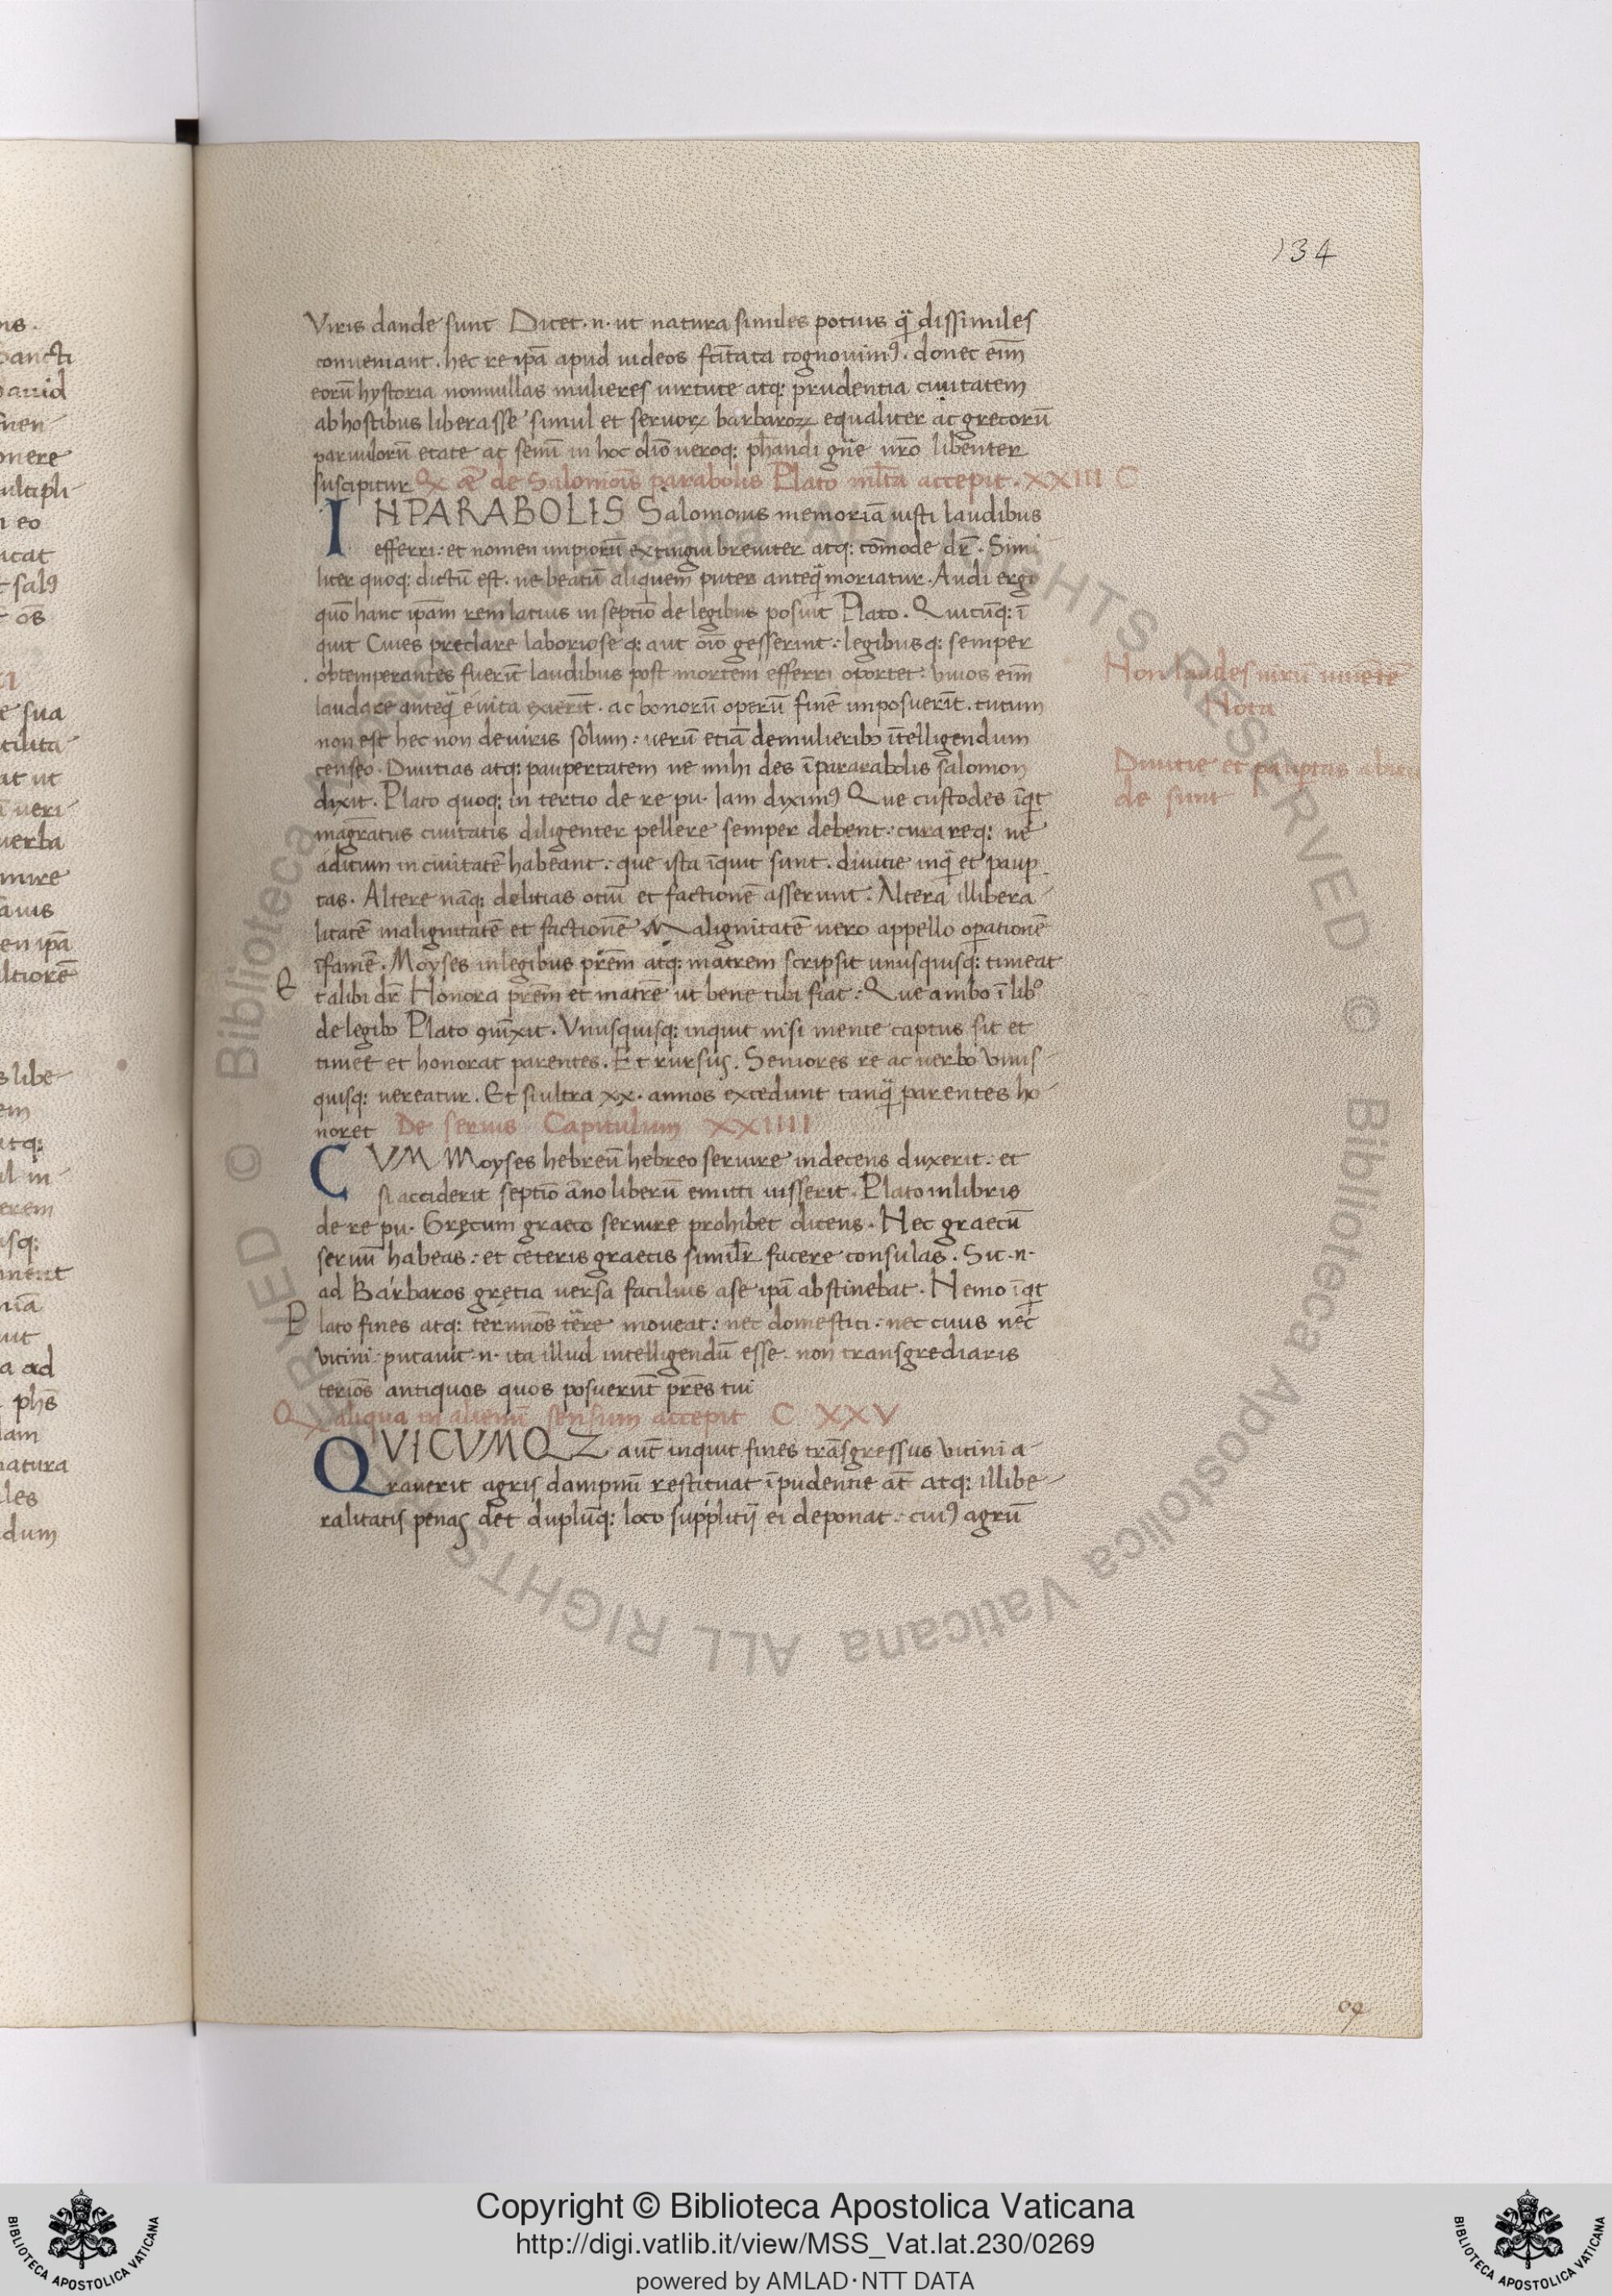 134
Viris dande sunt Dicet · n · ut natura similes potius q̃ dissimiles
conueniant . hec re ipā apud iudeos fc̄titata cognouimꝰ . donec eiīm
eorū hystoria nonnullas mulieres uirtute atq: prudentia ciuitatem
ab hostibus liberasse simul et seruoꝝ barbaroꝝ equaliter ac grecorū
paruulorū etate ac senū in hoc diō ueroq: ph̄andi gn̄e nr̄o libenter
suscipitur Qꝫ ex de Salomoīs parabolis Plato ml̄ta accepit . XXIII C
IN PARABOLIS Salomonis memoriā iusti laudibus
efferri : et nomen impiorū extingui breuiter atq: com̄ode dr̄ . Simi
liter quoq: dictū est . ne beatū aliquem putes anteq̃ moriatur . Audi ergo
quō hanc ipam rem latius in septio de legibus posuit Plato . Quicūq: ī
quit Ciues preclare laboriose q: aut oīo gesserint : legibusq: semper
obtemperantes fuerīt laudibus post mortem efferri oportet : Viuos eiīm
laudare anteq̃ e uita exierīt . ac bonorū operū finē imposuerīt . tutum
non est hec non de uiris solum : uerū etiā de mulieribꝰ ītelligendum
censeo . Diuitias atq: paupertatem ne mihi des ī pararabolis salomon
dixit . Plato quoq: in tertio de re pu . Iam diximꝰ Que custodes īqt
magr̄atus ciuitatis diligenter pellere semper debent : curareq: ne
aditum in ciuitatē habeant : que ista īquit sunt . diuitie inq̃ et paup
tas . Altere nāq: delitias otiū et factionē asserunt . Altera illibera-
litatē malignitatē et factionē Malignitatē uero appello operationē
īfamē . Moyses in legibus prēm atq: matrem scripsit unusquisq: timeat
Et alibi dr̄ Honora prēm et matrē ut bene tibi fiat : Que ambo ī libꝰ
de legibꝰ Plato ꝯiūxit . Vnusquisq: inquit nisi mente captus sit et
timet et honorat parentes . Et rursus . Seniores re ac uerbo Vnus-
quisq: uereatur . Et si ultra xx . annos excedunt tanq̃ parentes ho-
noret De seruis Capitulum XXIIII
CVM Moyses hebreū hebreo seruire indecens duxerit : et
si acciderit septio āno liberū emitti iusserit . Plato in libris
de re pu . Gręcum graeco seruire prohibet dicens . Nec graecū
seruū habeas : et ceteris graecis simil̄r facere consulas . Sic · n ·
ad Barbaros gręcia uersa facilius a se ipā abstinebat . Nemo īqt
Plato fines atq: termīos tērē moueat : nec domestici : nec ciuis nec
Vicini : putauit · n · ita illud intelligendū esse . non transgrediaris
teriōs antiquos quos posuerūt prēs tui
Qꝫ aliqua in alienū sensum accepit C . XXV
QVICVMQꝫ aut̄ inquit fines trāsgressus Vicini a-
rauerit agris dampnū restituat īpudentie at̄ atq: illibe-
ralitatis penas det duplūq: loco supplitij ei deponat : cuiꝰ agrū
Non laudes uirū uiuētē
Nota
Diuitie et paup̱tas abicie
de sunt
Copyright © Biblioteca Apostolica Vaticana
http://digi.vatlib.it/view/MSS_Vat.lat.230/0269
powered by AMLAD·NTT DATA